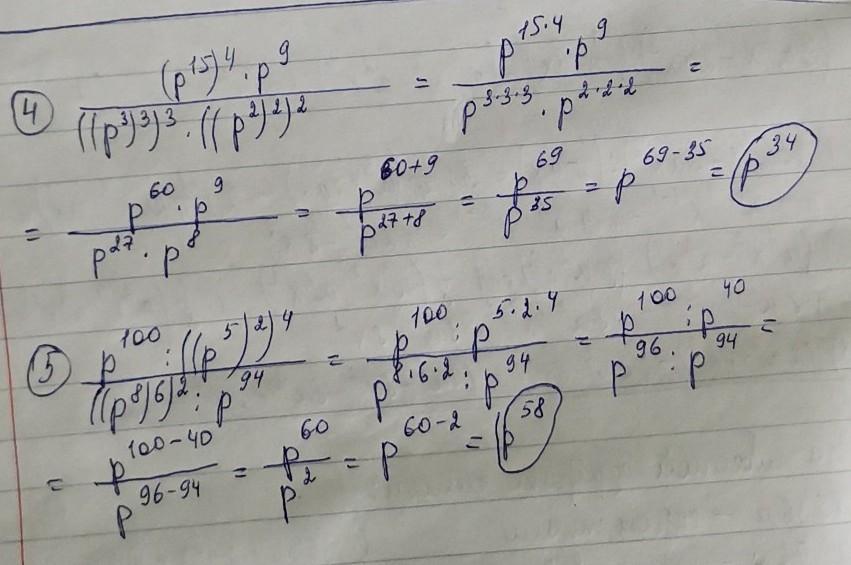 ④ ((p¹⁵)⁴ · p⁹) / (((p³)³)³ · ((p²)²)²) = (p¹⁵·⁴ · p⁹) / (p³·³·³ · p²·²·²) =
= (p⁶⁰ · p⁹) / (p²⁷ · p⁸) = p⁶⁰⁺⁹ / p²⁷⁺⁸ = p⁶⁹ / p³⁵ = p⁶⁹⁻³⁵ = p³⁴
⑤ (p¹⁰⁰ : ((p⁵)²)⁴) / (((p⁸)⁶)² : p⁹⁴) = (p¹⁰⁰ : p⁵·²·⁴) / (p⁸·⁶·² : p⁹⁴) = (p¹⁰⁰ : p⁴⁰) / (p⁹⁶ : p⁹⁴) =
= p¹⁰⁰⁻⁴⁰ / p⁹⁶⁻⁹⁴ = p⁶⁰ / p² = p⁶⁰⁻² = p⁵⁸